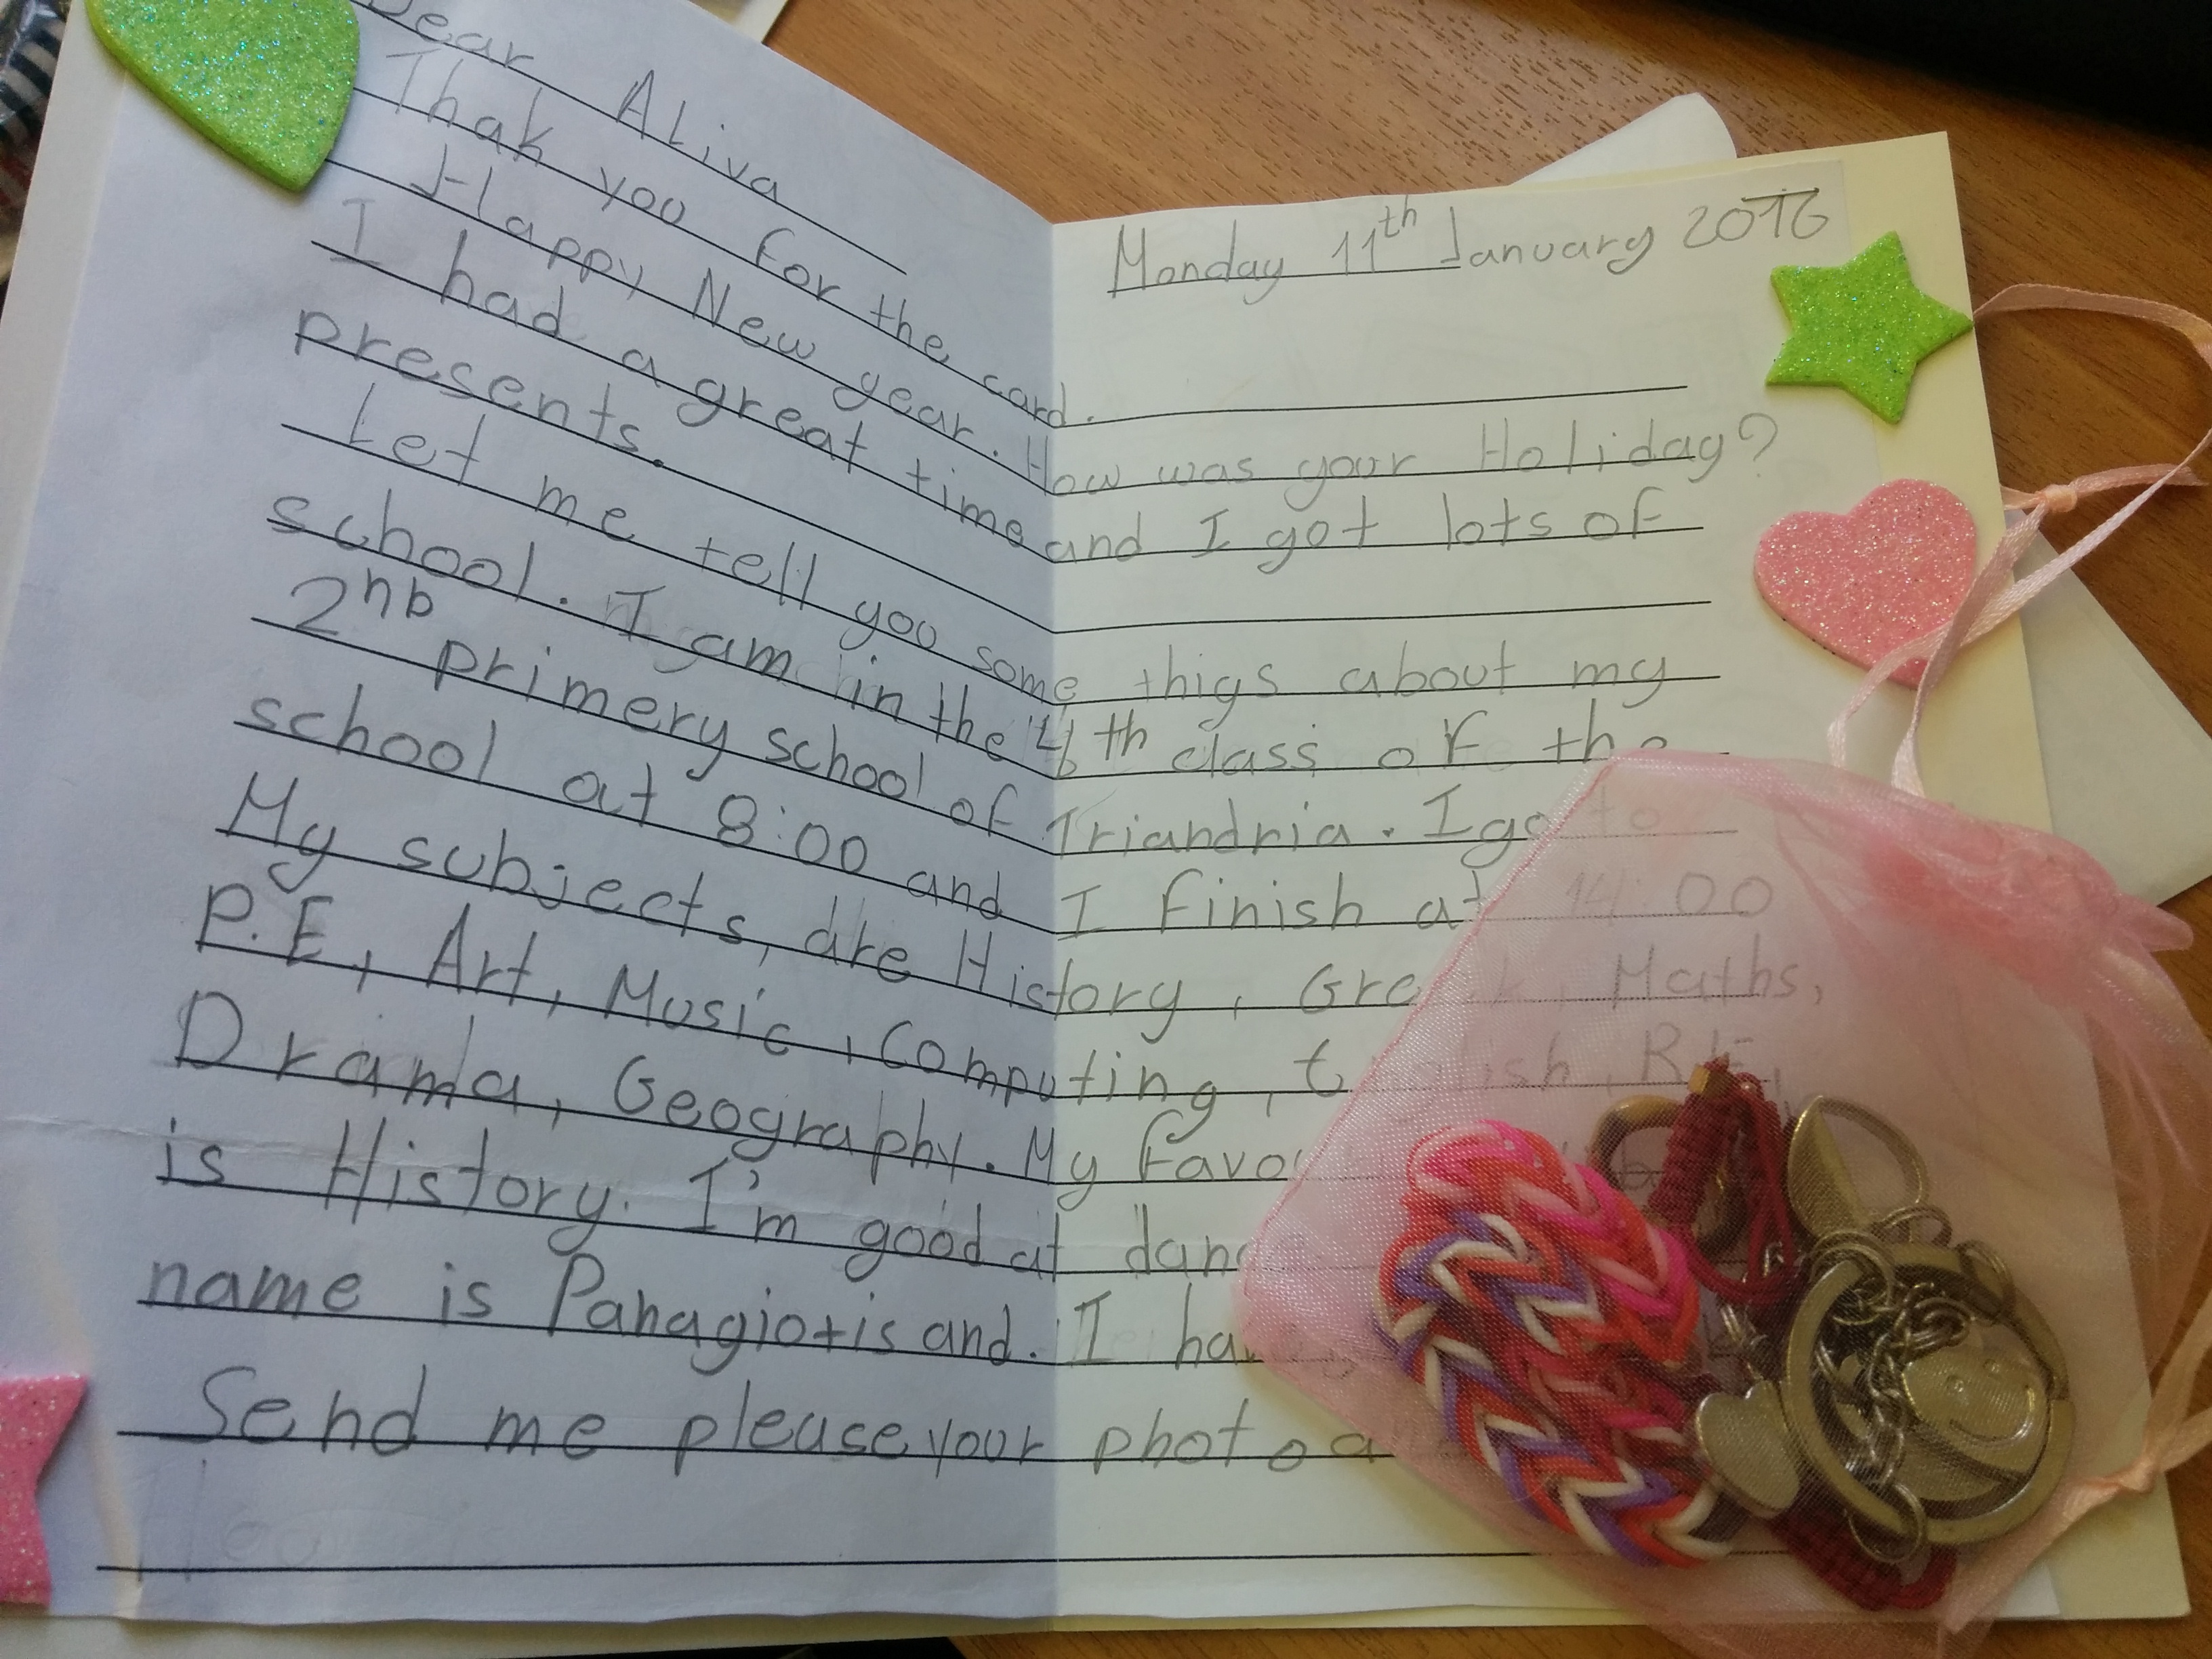 Monday 11th January 2016
Dear Aliva
Thak you for the card.
Happy New year. How was your Holiday?
I had a great time and I got lots of
presents.
Let me tell you some thigs about my
school. I am in the 4th class of the
2nb primery school of Triandria. I go to
school at 8:00 and I finish at 14:00
My subjects, are History, Greek, Maths,
P.E, Art, Music, Computing, English, R.E,
Drama, Geography. My
is History. I'm good at
name is Panagiotis and. I
Send me please your photo